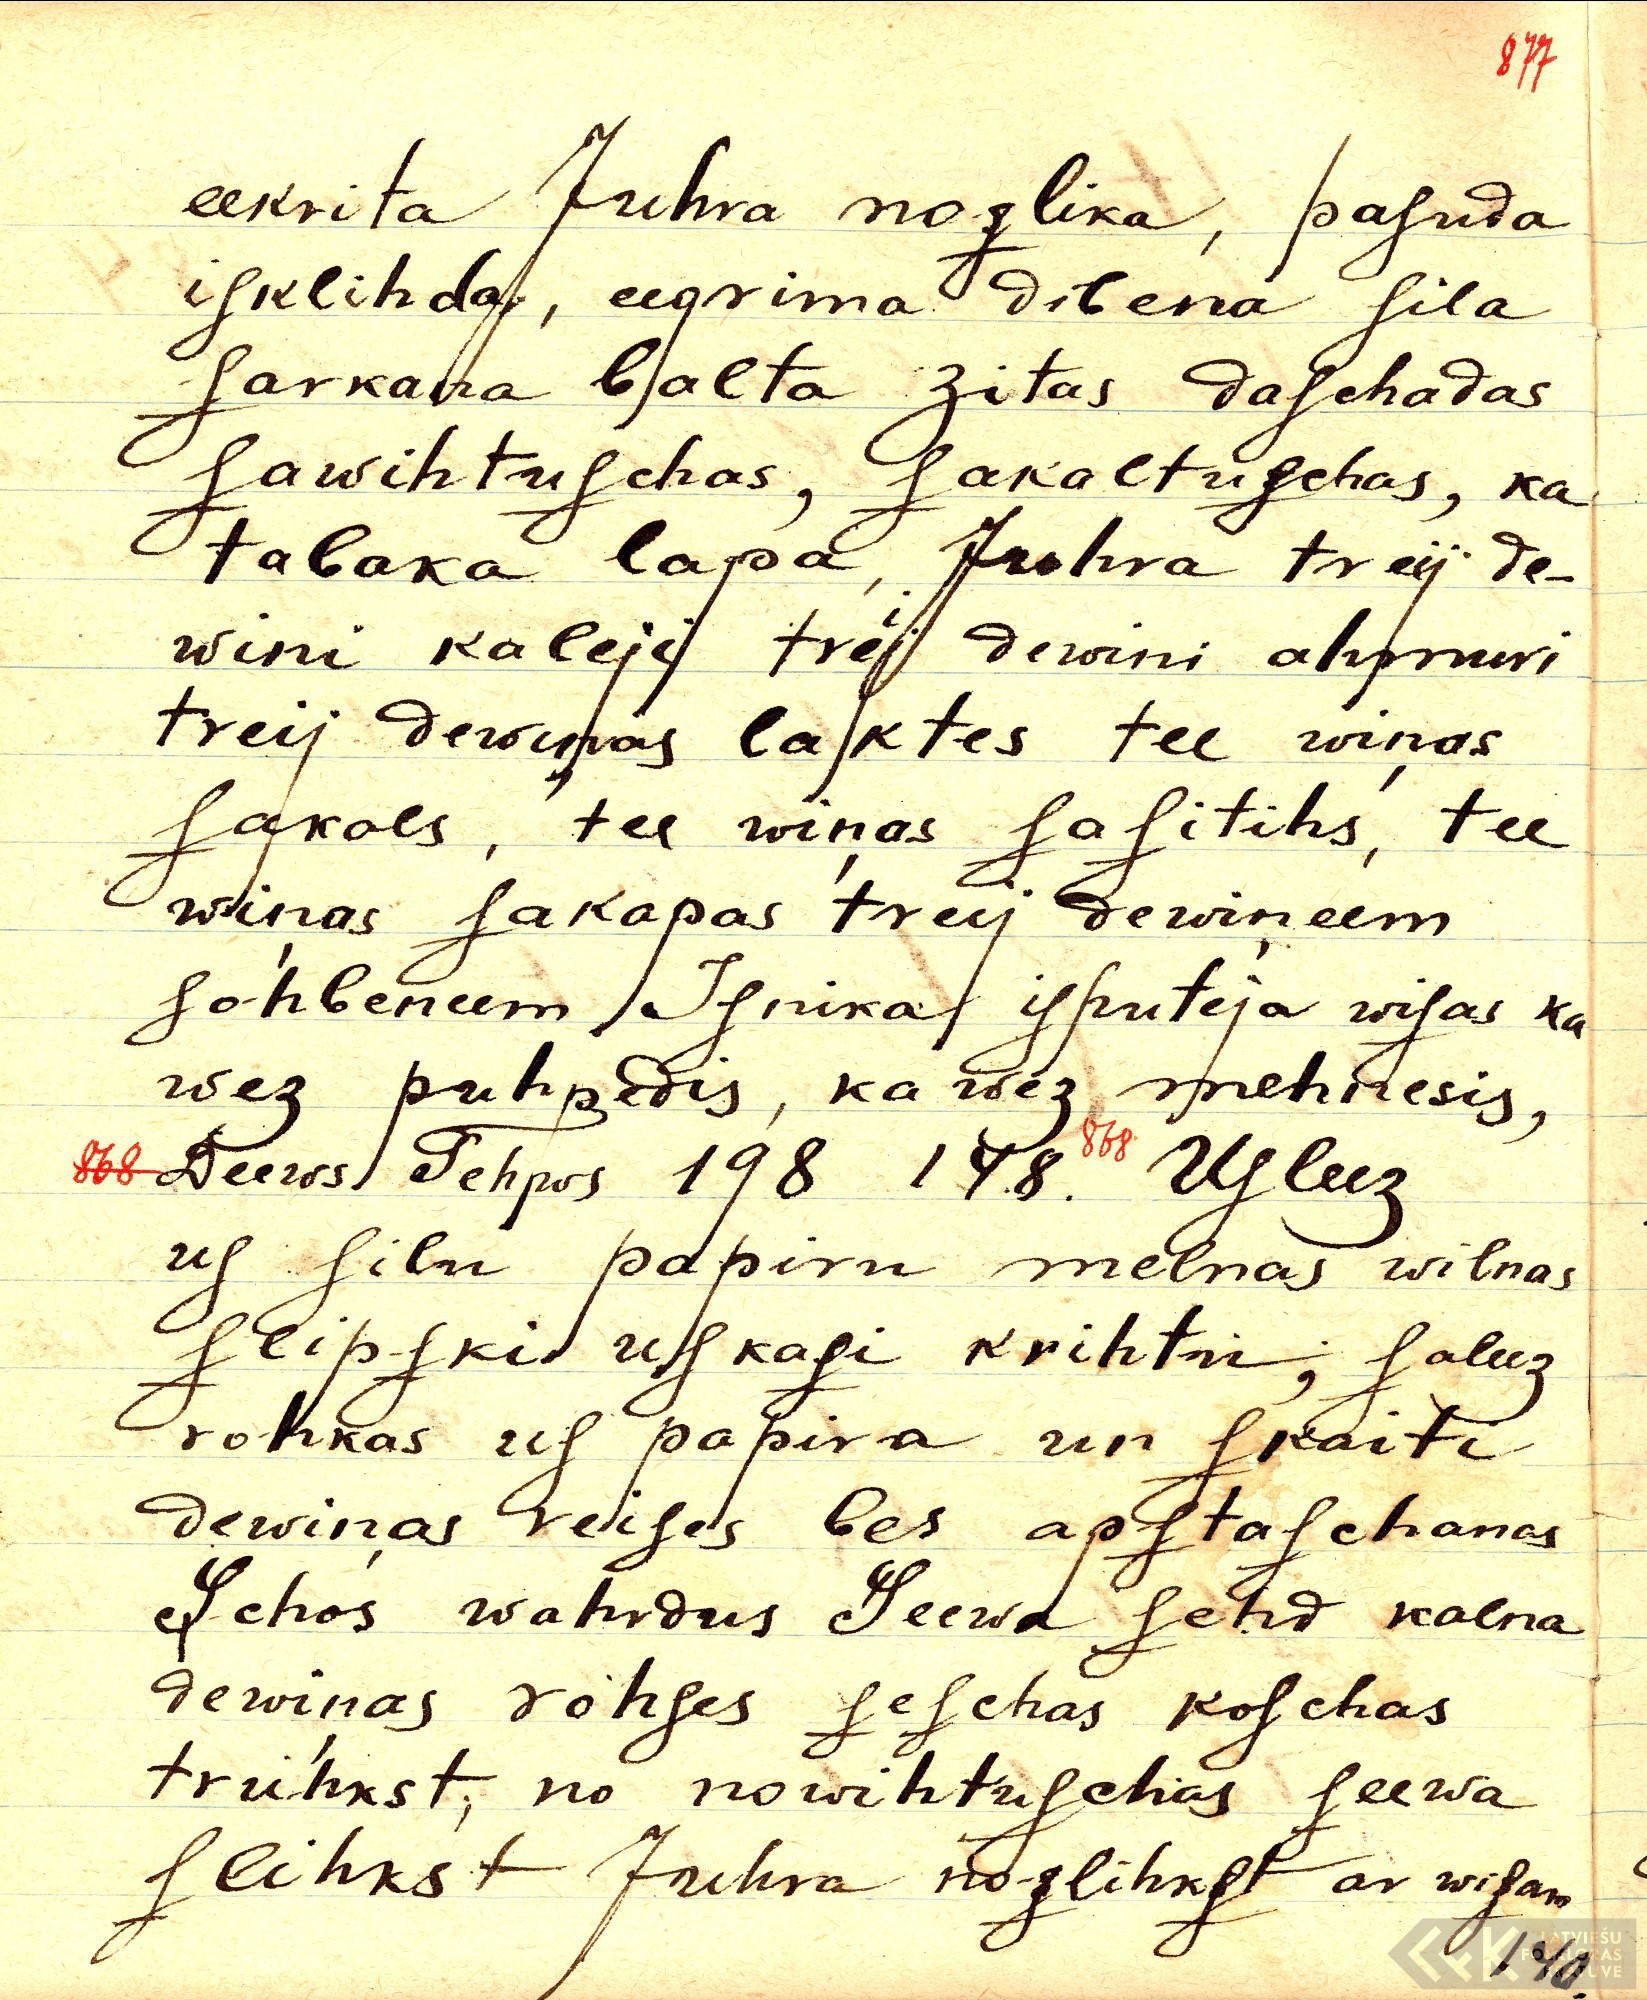 877
eekrita Juhra noſlika, paſuda
iſklihda, eegrima dibena ſila
ſarkana balta zitas daſchadas
ſawihtuſchas, ſakaltuſchas, ka
tabaka lapa, Juhra treij de-
wini kaleji trej dewini ahmuri
treij dewiņas laktes tee wiņas
ſakals, tee wiņas ſaſitihs, tee
wiņas ſakapas treij dewiņeem
ſohbeneem Iſnika iſputeja wiſas ka
wez puhpedis, ka wez mehnesis,
868 Deews Tehws 198 148. 868 Uſleez
uſ ſilu papiru melnas wilnas
ſlipſki uſkaſi krihtu; ſaleez
rohkas uſ papira un ſkaiti
dewiņas reiſes bes apſtaſchanas
Schos wahrdus Seewa ſehd kalna
dewiņas rohſes ſeſchas koſchas
truhkst, no nowihtuſchas ſeewa
ſlihkst Juhra noſlihkſt ar wiſam
140.
LATVIEŠU
FOLKLORAS
KRĀTUVE